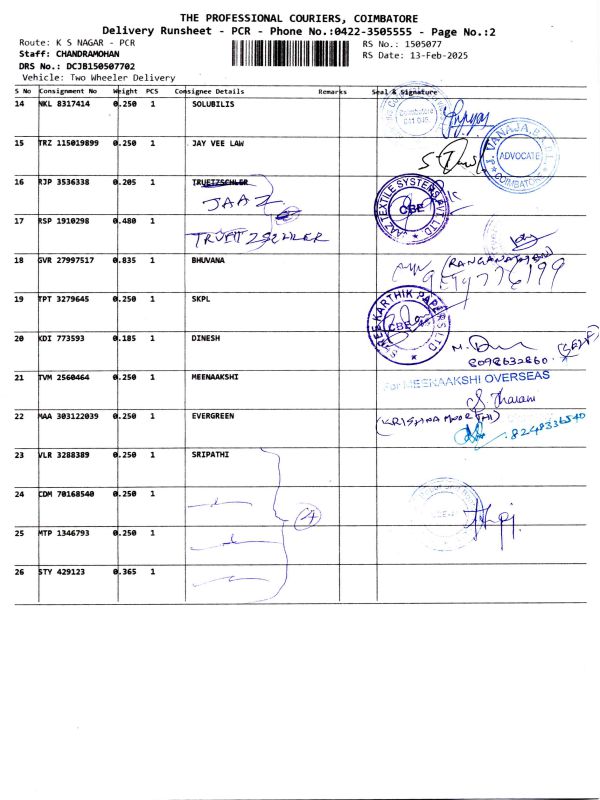 THE PROFESSIONAL COURIERS, COIMBATORE
Delivery Runsheet - PCR - Phone No.:0422-3505555 - Page No.:2
Route: K S NAGAR - PCR
RS No.: 1505077
Staff: CHANDRAMOHAN
RS Date: 13-Feb-2025
DRS No.: DCJB150507702
Vehicle: Two Wheeler Delivery
S No Consignment No Weight PCS Consignee Details Remarks Seal & Signature
14 NKL 8317414 0.250 1 SOLUBILIS
15 TRZ 115019899 0.250 1 JAY VEE LAW
J. VANAJA, B.A., B.L.
ADVOCATE
COIMBATORE
16 RJP 3536338 0.205 1 TRUETZSCHLER
JAAZ
JAAZ TEXTILE SYSTEMS PVT. LTD.
CBE
17 RSP 1910298 0.480 1
TRUETZSCHLER
18 GVR 27997517 0.835 1 BHUVANA
19 TPT 3279645 0.250 1 SKPL
SREE KARTHIK PAPERS LTD
CBE
20 KDI 773593 0.185 1 DINESH
8098632860 (SELF)
21 TVM 2560464 0.250 1 MEENAAKSHI
For MEENAAKSHI OVERSEAS
S. Tharani
22 MAA 303122039 0.250 1 EVERGREEN
(KRISHNAMOORTHI)
8248336540
23 VLR 3288389 0.250 1 SRIPATHI
24 CDM 70168540 0.250 1
4
25 MTP 1346793 0.250 1
26 STY 429123 0.365 1